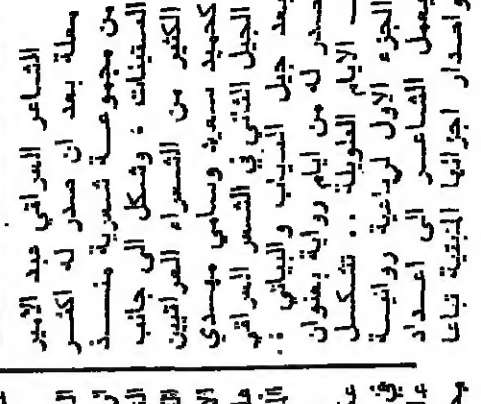 الشاعر العراقي عبد الأمير
معلة بعد ان صدر له اكثر
من مجموعة شعرية منذ
الستينات ، وشكل الى جانب
الكثير من الشعراء العراقيين
كحميد سعيد وسامي مهدي
الجيل الثاني في الشعر العراقي
بعد جيل السياب والبياتي ..
صدر له من ايام رواية بعنوان
ـ الايام الطويلة .. تشكل
الجزء الاول لرباعية روائية
يعمل الشاعر الى اعداد
واصدار اجزائها المتبقية تباعا